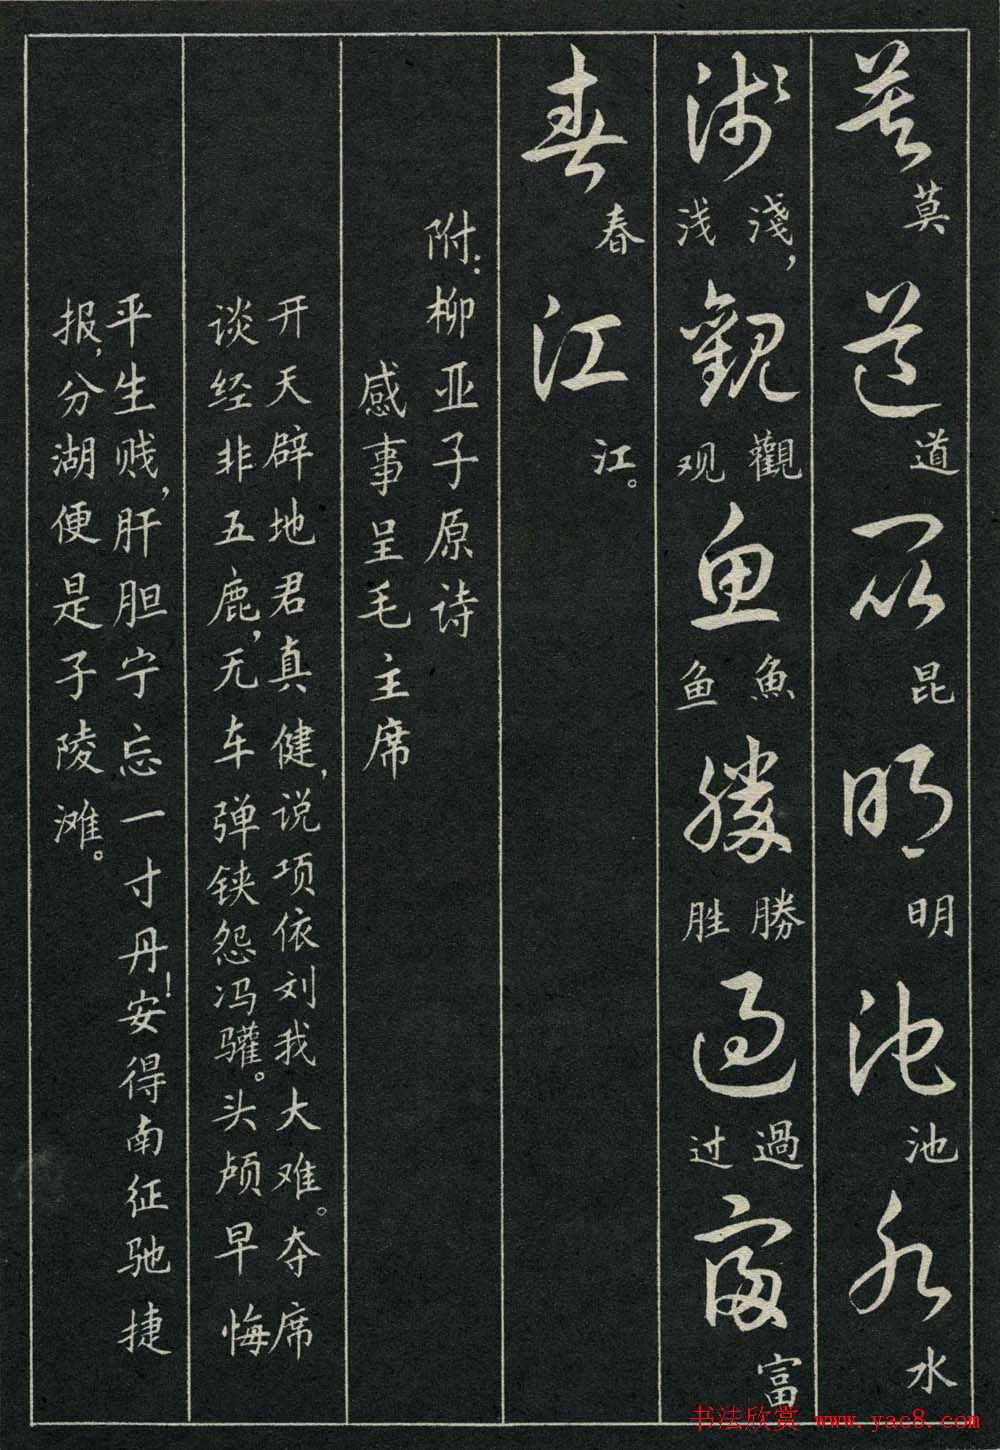 莫道昆明池水
莫道昆明池水
淺觀魚勝過富
淺，觀魚勝過富
浅观鱼胜过
春江
春江。
附：柳亚子原诗
感事呈毛主席
开天辟地君真健，说项依刘我大难。夺席
谈经非五鹿，无车弹铗怨冯驩。头颅早悔
平生贱，肝胆宁忘一寸丹！安得南征驰捷
报，分湖便是子陵滩。
书法欣赏 www.yac8.com